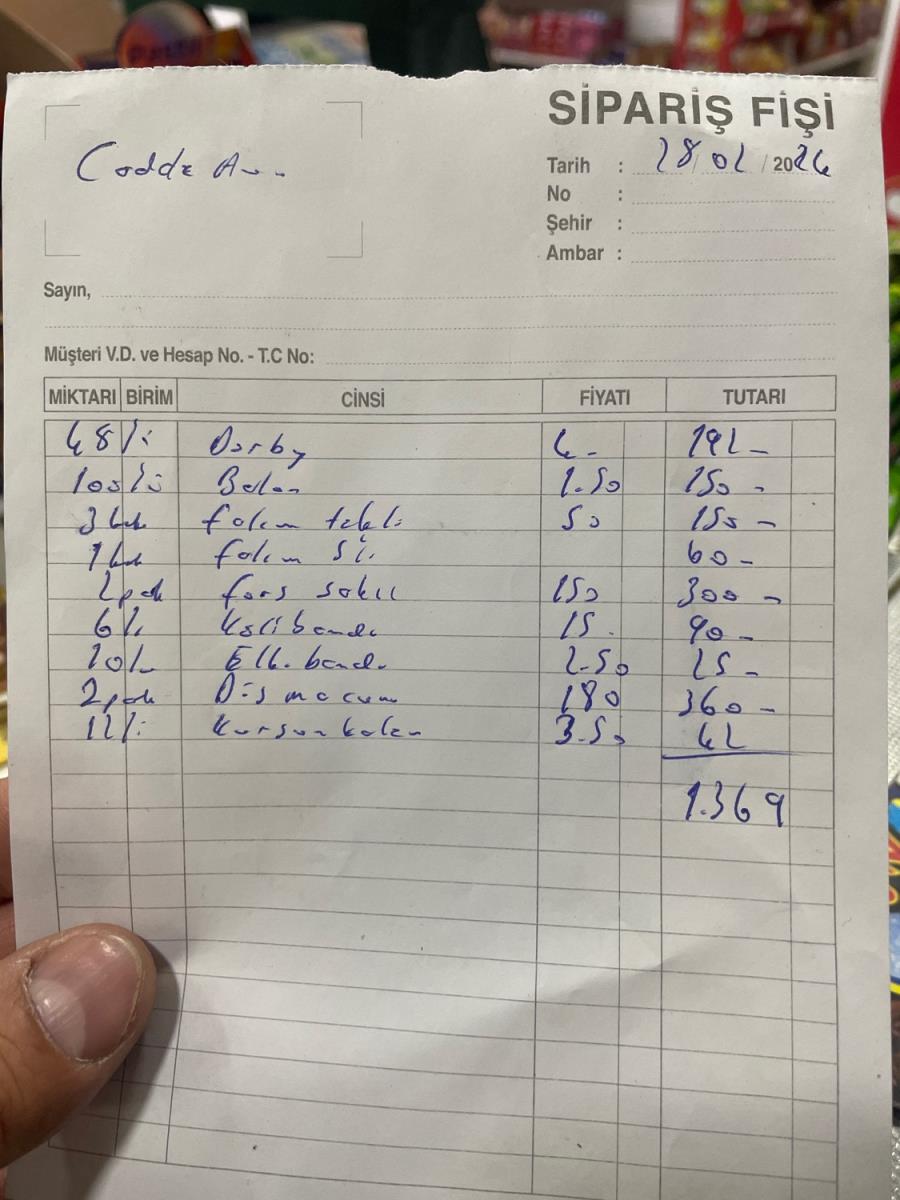 SİPARİŞ FİŞİ
Cadde
Tarih : 28/02/2026
No :
Şehir :
Ambar :
Sayın,
Müşteri V.D. ve Hesap No. - T.C No:
MİKTARI BİRİM CİNSİ FİYATI TUTARI
48 Derby 4- 192-
100 Balon 1.50 150-
3 falım tekli 50 150-
1 falım 60-
2 pak 150 300-
6 15 90-
10 bandı 2.50 25-
2 pak Diş macunu 180 360-
12 kurşun kalem 3.50 42
1.369